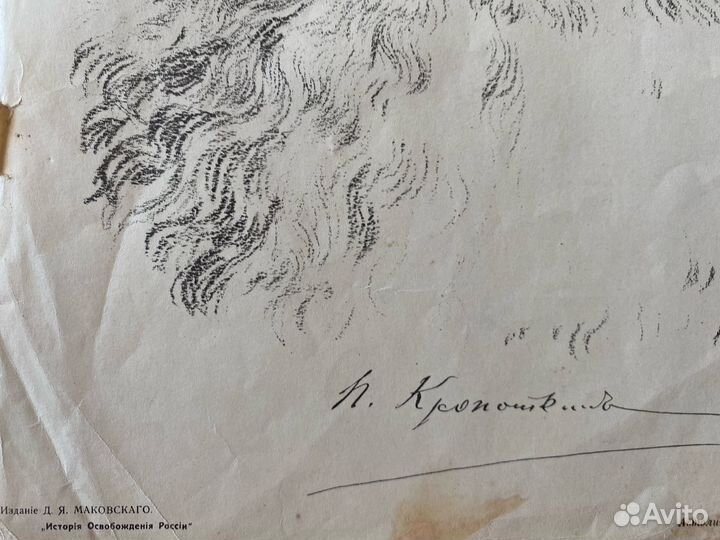 П. Кропоткинъ
Изданіе Д. Я. МАКОВСКАГО.
„Исторія Освобожденія Россіи"
Автоли
Avito